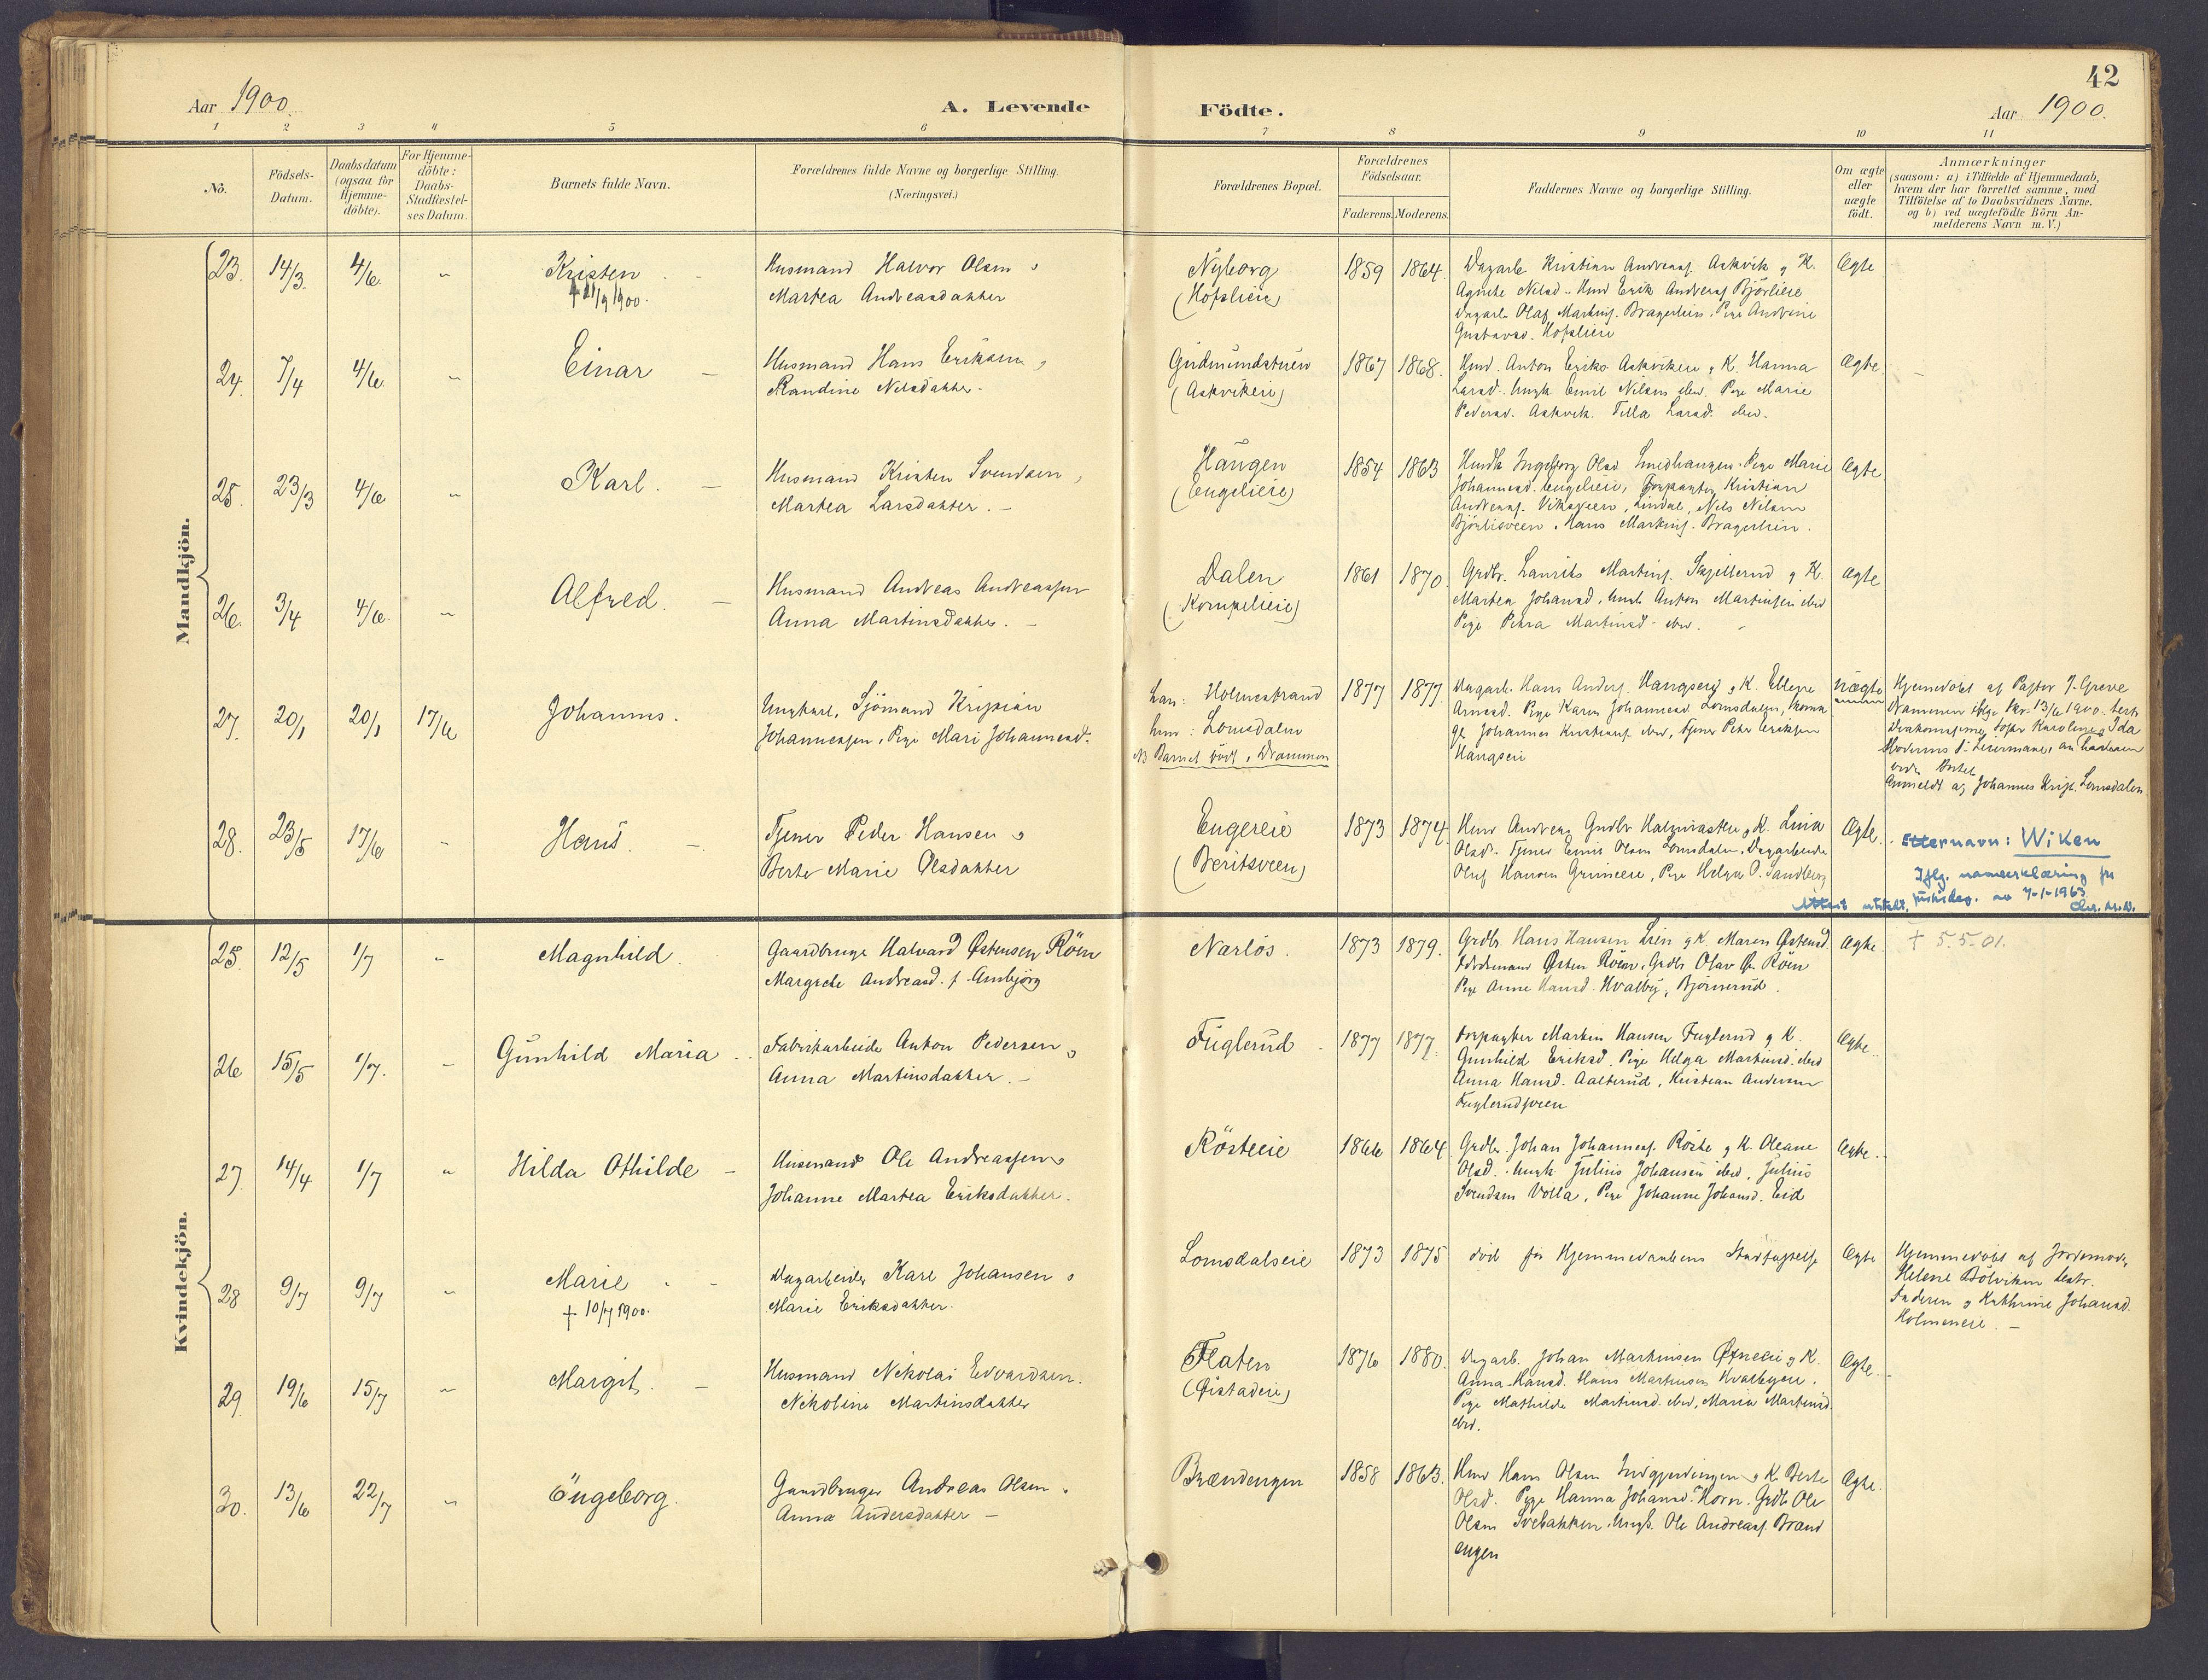 42
Aar 1900.
A. Levende Födte.
Aar 1900.
1 2 3 4 5 6 7 8 9 10 11
No.
Födsels-
Datum.
Daabsdatum
(ogsaa for
Hjemme-
döbte).
For Hjemme-
döbte:
Daabs-
Stadfæstel-
ses Datum.
Barnets fulde Navn.
Forældrenes fulde Navne og borgerlige Stilling.
(Næringsvei.)
Forældrenes Bopæl.
Forældrenes
Födselsaar.
Faderens. Moderens.
Faddernes Navne og borgerlige Stilling.
Om ægte
eller
uægte
födt.
Anmærkninger
(saasom: a) i Tilfælde af Hjemmedaab,
hvem der har forrettet samme, med
Tilföielse af to Daabsvidners Navne.
og b) ved uægtefödte Börn An-
melderens Navn m. V.)
Mandkjön.
23. 14/3. 4/6 "
Kristen
† 21/9 1900.
Husmand Halvor Olsen o
Martea Andreasdatter
Nyborg
(Hofslieie)
1859 1864.
Dagarb. Kristian Andreasf. Askvik og K.
Agnethe Nilsd. Hmd Erik Andreasf Björlieie
Dagarb Olaf Martinsf. Bragerlein. Pige Andrine
Gustavsd. Hofslieie
Ægte
24. 7/4 4/6 "
Einar
Husmand Hans Eriksen o
Randine Nilsdatter.
Gudmundstuen
(Askvikeie)
1867 1868.
Hmd. Anton Eriks. Askvikeie og K. Hanna
Larsd. Ungk Emil Nilsens ibid. Pige Marie
Pedersd. Askvik. Tilla Larsd. ibid.
Ægte.
25. 23/3 4/6 "
Karl.
Husmand Kristen Svendsen,
Martea Larsdatter.
Haugen
(Engelieie)
1854 1863
Ingeborg Olsd. Smedhaugen. Pige Marie
Johannesd. Engelieie, Forpagter Kristian
Andreasf. Viksveen, Lindal, Nils Nilsen
Björlisveen. Hans Martinsf. Bragerlien.
Ægte
26. 3/4 4/6. "
Alfred.
Husmand Andreas Andreassen
Anna Martinsdatter.
Dalen
(Kompelieie)
1861 1870.
Grdbr. Laurits Martinsf. Skjellerud og K.
Martea Johansd. Ungk Anton Martinsen ibid
Pige Petra Martinsd. ibid.
Ægte
27. 20/1 20/1 17/6
Johannes.
Ungkarl, Sjömand Kristian
Johannessen, Pige Mari Johannesd.
han: Holmestrand
hun: Lomsdalen
NB Barnet födt i Drammen
1877 1877.
Dagarb. Hans Andersf. Haugseie og K. Ellene
Arnesd. Pige Karen Johannesd. Lomsdalen,
Johannes Kristiansf. ibid, Tjener Peter Eriksen
Haugseie
Uægte
Hjemmedöbt af Pastor J. Greve
Drammen 13/6 1900.
Karoline og Ida
Moderens 1' Leiermaal,
Anmeldt af Johannes Krist. Lomsdalen.
28. 23/5 17/6 "
Hans.
Tjener Peder Hansen o
Berte Marie Olsdatter
Engereie
(Beritsveen)
1873 1874.
Hmd Andreas og K. Lina
Olsd. Tjener Emil Olsen Lomsdalen. Dagarbeider
Oluf Hansen Grimeeie, Pige Helga O. Sandberg
Ægte.
Etternavn: Wiken
Iflg. navneerklæring fra
justisdep. av 7-1-1963
Attest utstedt.
Kvindekjön.
25. 12/5 1/7 "
Magnhild.
Gaardbruger Halvard Østensen Röen
Margrete Andreasd. f. Ambjörg
Narlös.
1873 1879.
Grdbr. Hans Hansen Lien og K. Maren Østensd.
Föderaadsmand Østen Röen. Grdbr Olav Ø. Röen
Pige Anne Hansd. Hvalby, Bjørnerud.
Ægte.
† 5.5.01.
26 15/5 1/7. "
Gunhild Maria
Fabrikarbeider Anton Pedersen o
Anna Martinsdatter.
Fuglerud
1877 1877.
Forpagter Martin Hansen Fuglerud og K.
Gunhild Eriksd. Pige Helga Martinsd. ibid
Anna Hansd. Aalterud, Kristian Andersen
Fuglerudsveen
Ægte.
27. 14/4 1/7 "
Hilda Othilde
Husmand Ole Andreassen o
Johanne Martea Eriksdatter.
Rösteeie
1866 1864
Grdbr. Johan Johannesf. Röste og K. Oleane
Olsd. Ungk. Julius Johansen ibid, Julius
Svendsen Volla, Pige Johanne Johansd. Eid
Ægte.
28 9/7 9/7 "
Marie
† 10/7 1900.
Dagarbeider Karl Johansen o
Marie Eriksdatter.
Lomsdalseie
1873 1875
död før Hjemmedaabens Stadfæstelse
Ægte
Hjemmedöbt af Jordemoder
Helene Bölviken testr.
Faderen og Kathrine Johansd.
Holmeneie.
29. 19/6 15/7 "
Margit.
Husmand Nikolai Edvardsen.
Nikoline Martinsdatter
Flaten
(Øistadeie)
1876 1880.
Dagarb. Johan Martinsen Øfneeie og K.
Anna Hansd. Hans Martinsen Hvalbyeie.
Pige Mathilde Martinsd. ibid, Maria Martinsd.
ibid.
Ægte.
30. 13/6 22/7 "
Engeborg.
Gaardbruger Andreas Olsen o
Anna Andersdatter
Brændengen
1858 1863.
Hmd Hans Olsen Indgjerdingen og K. Berte
Olsd. Pige Hanna Johansd. Horn. Grdb. Ole
Olsen Svebakken. Ungk. Ole Andreasf. Brænd
engen
Ægte.